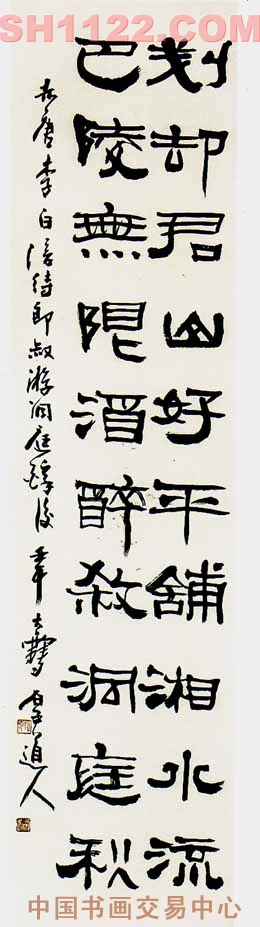 SH1122.COM
刬却君山好平舖湘水流
巴陵無限酒醉殺洞庭秋
右唐李白陪侍郎叔游洞庭醉後
道人
中国书画交易中心